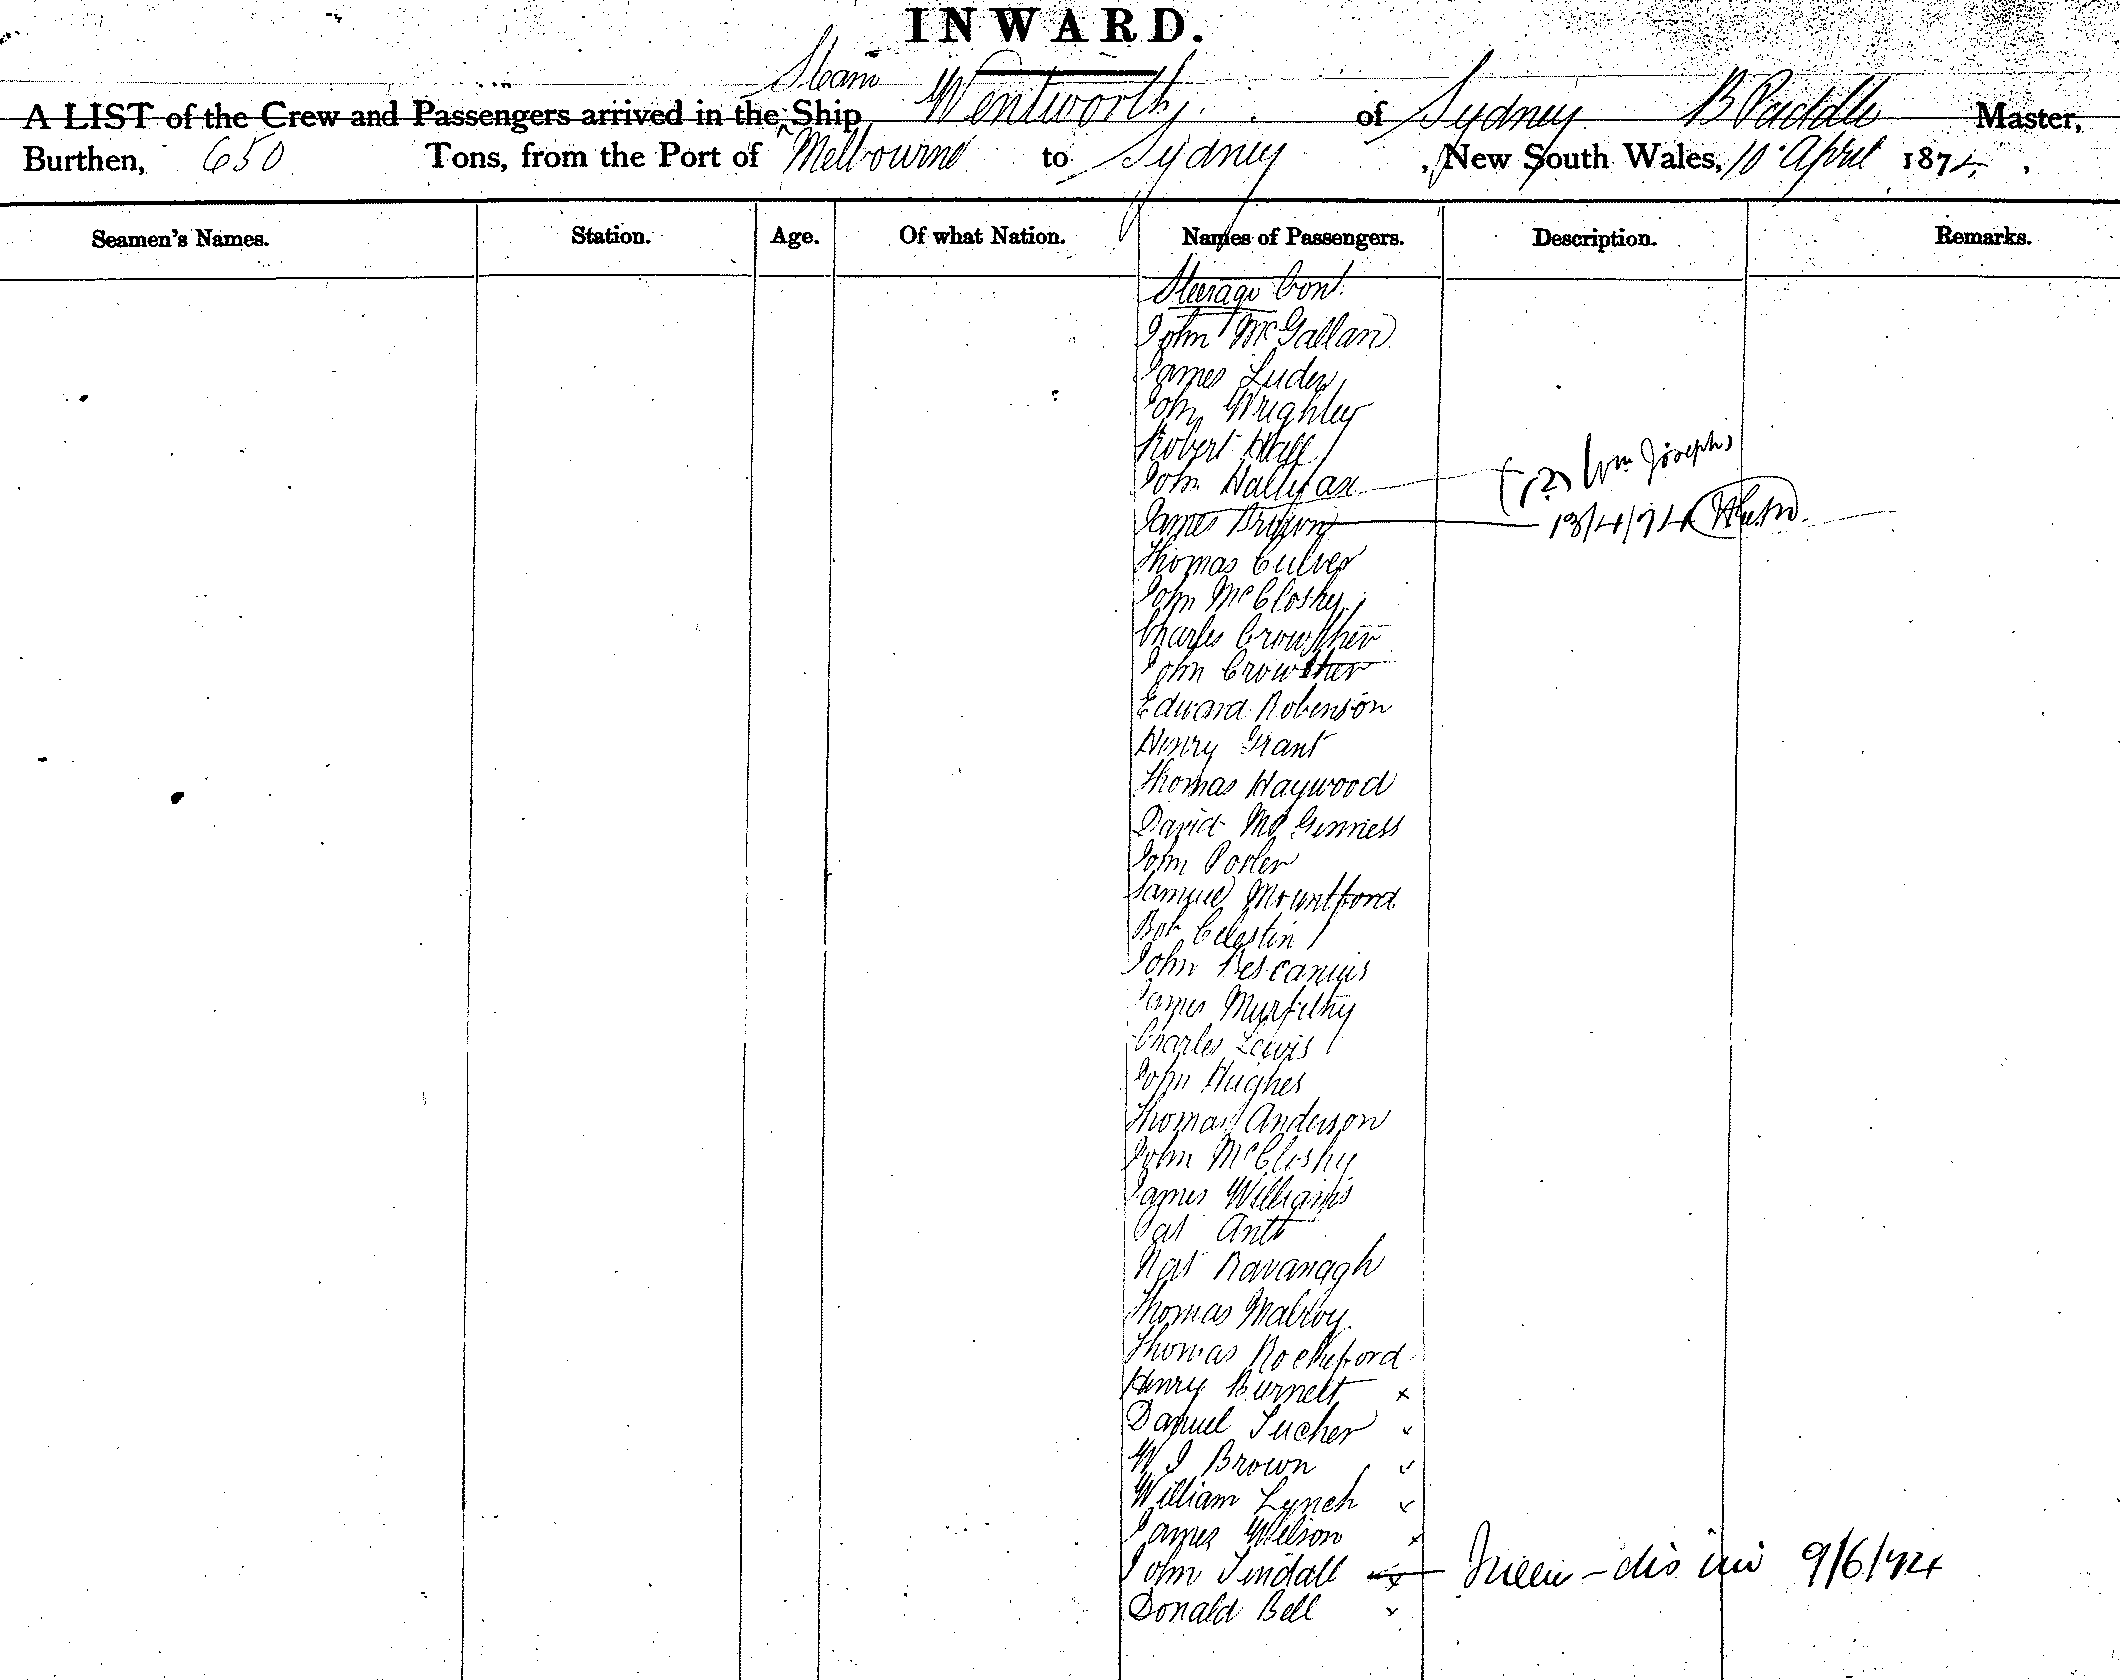 INWARD.
A LIST of the Crew and Passengers arrived in the Steam Ship Wentworth, of Sydney B Paddle Master,
Burthen, 650 Tons, from the Port of Melbourne to Sydney, New South Wales, 10 April 1874.
Seamen's Names. Station. Age. Of what Nation. Names of Passengers. Description. Remarks.
Steerage Cont.
John McGallan
James Luder
John Wrighley
Robert Hall
John Hallifax Wm Josephs
James 13/4/74
Thomas Culver
John McClosky
Charles Crowther
John Crowther
Edward Robenson
Henry Grant
Thomas Haywood
David McGinness
John Porler
Samuel Mountford
Bob Celestin
John
James
Charles Lewis
John Hughes
Thomas Anderson
John McClosky
James Williams
Pat
Kavanagh
Thomas Malroy
Thomas Rocheford
Henry Burnett x
Daniel Tucker x
W J Brown x
William Lynch x
James Wilson x
John Tindall x dis 9/6/74
Donald Bell x